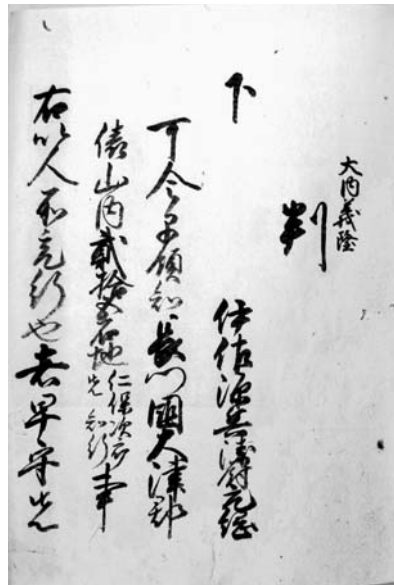 大内義隆
判
下　伊佐源兵衛尉元綱
可令早領知長門國大津郡
俵山内貳拾五石地仁保次郎先知行事
右以人所宛行也者早守先